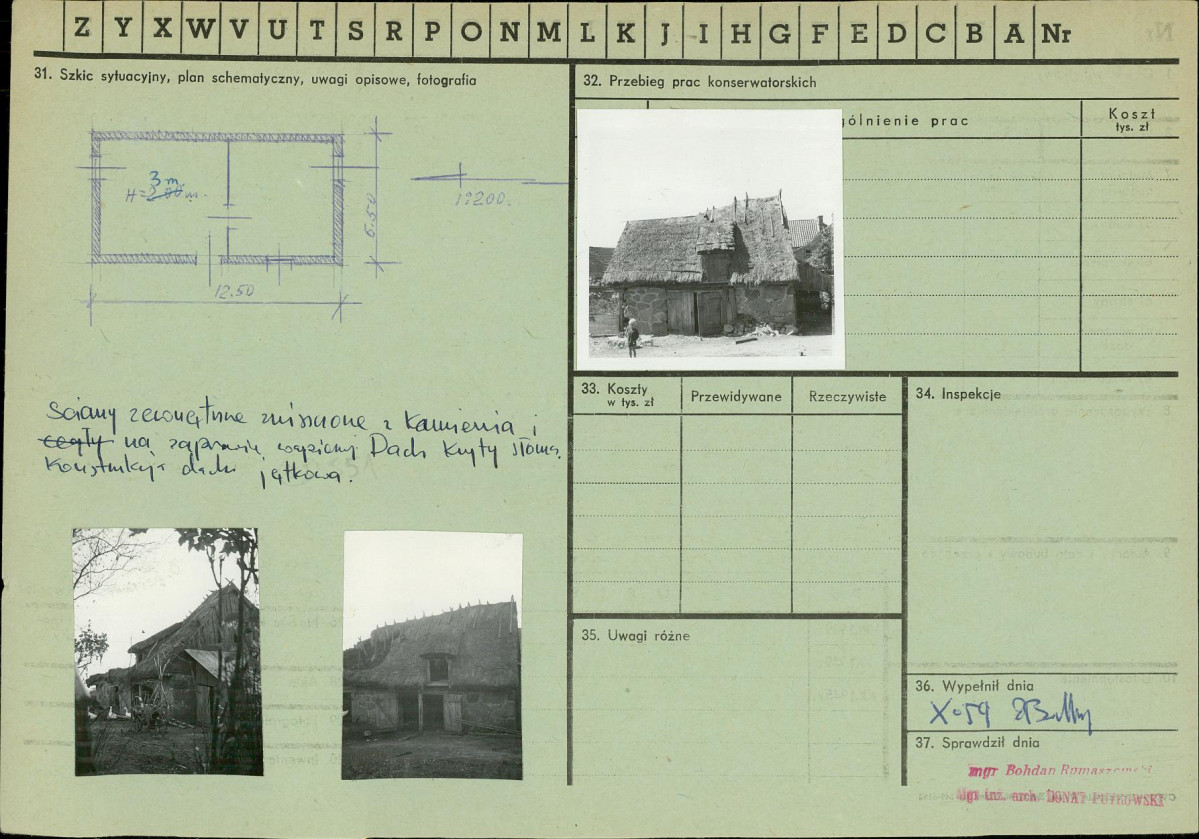 Z Y X W V U T S R P O N M L K J I H G F E D C B A Nr
31. Szkic sytuacyjny, plan schematyczny, uwagi opisowe, fotografia
3 m.
H = 2.00 m.
6.50
12.50
1:200.
Ściany zewnętrzne wznoszone z kamienia i
cegły na zaprawie wapiennej Dach kryty słomą.
Konstrukcja dachu jętkowa.
32. Przebieg prac konserwatorskich
gólnienie prac
Koszt
tys. zł
33. Koszty
w tys. zł
Przewidywane
Rzeczywiste
34. Inspekcje
35. Uwagi różne
36. Wypełnił dnia
X-59
37. Sprawdził dnia
mgr Bohdan Rumaszewski
Mgr inż. arch. DONAT PUTKOWSKI